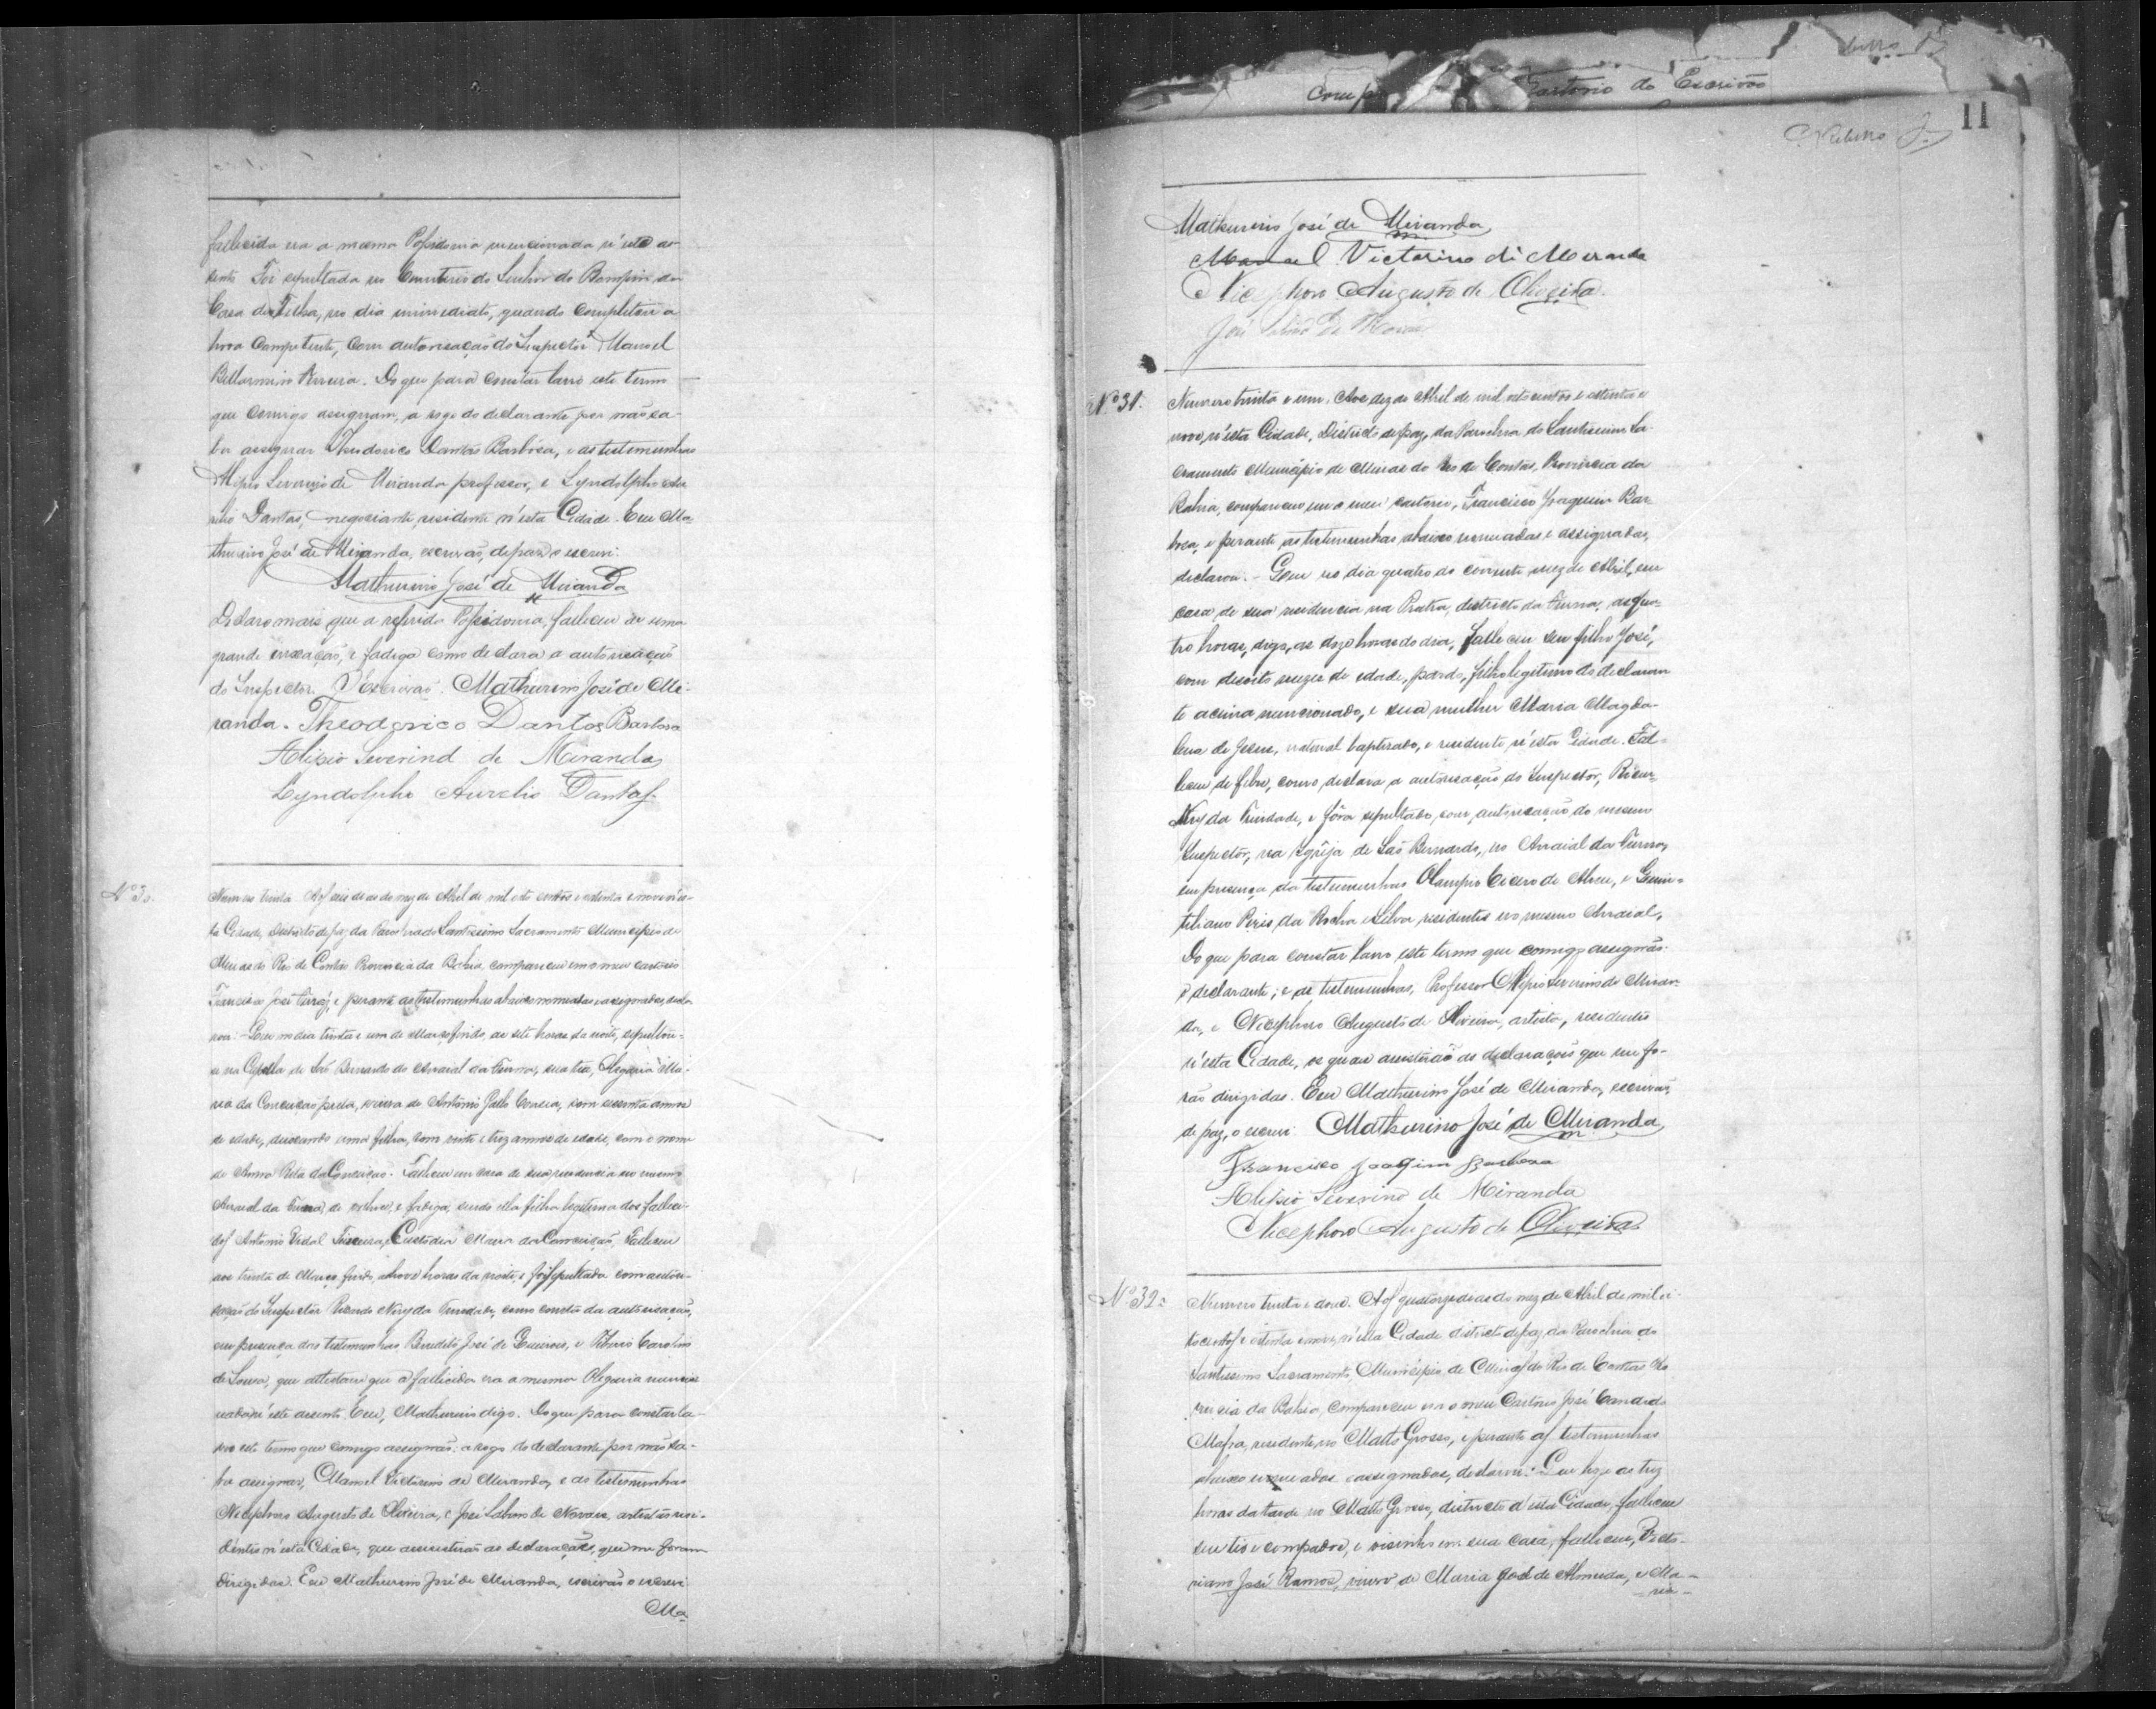 fallecida era a mesma Possidonia mencionada n'este as-
sento Foi sepultada no Cemiterio do Senhor do Bomfim da
Casa da Telha, no dia immediato, quando completou a
hora Competente, com autorisação do Inspector Manoel
Bellarmino Pereira. Do que para constar lavro este termo
que comigo assignam, a rogo do declarante por não sa-
ber assignar Theodorico Dantas Barbosa, e as testemunhas
Alipio Severino de Miranda professor, e Lyndolpho Au-
relio Dantas, negociante, residente n'esta Cidade. Eu Ma-
thurino José de Miranda, escrivão de paz o escrevi.
Mathurino José de Miranda
Declaro mais que a referida Possidonia, falleceu de uma
grande inchação, e fadiga como declara a autorisação
do Inspector. O escrivão. Mathurino José de Mi-
randa. Theoderico Dantas Barbosa
Alipio Severino de Miranda
Lyndolpho Aurelio Dantas
Nº 30.
Numero trinta Aos seis dias do mez de Abril de mil oito centos e oitenta e nove n'es-
ta Cidade, Districto de paz da Parochia do Santissimo Sacramento Municipio de
Minas do Rio de Contas Provincia da Bahia, compareceu em o meu cartorio
Francisco José e perante as testemunhas abaixo nomeadas e assignadas, decla-
rou: - Que no dia trinta e um de Março findo, as sete horas da noite, sepultou-
se na Capella de São Bernardo do Arraial da Furna, sua tia, Olegaria Ma-
ria da Conceição preta, viuva de Antonio Correia, com sessenta annos
de edade, deixando uma filha, com vinte e trez annos de edade, com o nome
de Anna Rita da Conceição. Falleceu em casa de sua residencia no mesmo
Arraial da Furna, de e fadiga, sendo ella filha legitima dos falleci-
dos Antonio Vidal Teixeira, Custodia Maria da Conceição, Falleceu
aos trinta de Março findo, a nove horas da noite, e foi sepultada com autori-
sação do Inspector Ricardo Nery da Trindade, como consta da autorisação,
em presença das testemunhas Benedito José de e Carolino
de Sousa, que attestam que a fallecida era a mesma Olegaria mencio-
nada n'este assento. Eu, Mathurino digo. Do que para constar la-
vro este termo que comigo assignão: a rogo do declarante por não sa-
ber assignar, Manoel Victorino de Miranda, e as testemunhas
Nicephoro Augusto de Oliveira, e José de Novaes, artistas resi-
dentes n'esta Cidade, que assistirão as declarações, que me foram
dirigidas. Eu Mathurino José de Miranda, escrivão o escrevi
Ma
11
Cartorio do Escrivão
Mathurino José de Miranda
Manoel Victorino di Meranda
Nicephoro Augusto de Oliveira.
José De
Nº 31.
Numero trinta e um. Aos dez de Abril de mil oito centos e oitenta e
nove, n'esta Cidade, Districto de paz, da Parochia do Santissimo Sa-
cramento Municipio de Minas do Rio de Contas, Provincia da
Bahia, compareceu em o meu cartorio, Francisco Joaquim Bar-
bosa, e perante as testemunhas abaixo nomeadas e assignadas,
declarou. - Que no dia quatro do corrente mez de Abril, em
casa de sua residencia na Prata, districto da Furna, as qua-
tro horas, digo, as doze horas do dia, falleceu seu filho José,
com desoito mezes de edade, pardo, filho legitimo do declaran
te acima mencionado, e sua mulher Maria Magda-
lena de Jesus, natural baptisado, e residente n'esta Cidade. Fal-
leceu de febre, como declara a autorisação do Inspector, Ricar-
Nery da Trindade, e fôra sepultado, com autorisação do mesmo
Inspector, na Igreja de São Bernardo, no Arraial da Furna,
em presença das testemunhas Olampio Cicero de Abreu, e Quin-
tiliano Peris da Rocha e Silva, residentes no mesmo Arraial.
Do que para constar lavro este termo que comigo assignão:
o declarante; e as testemunhas, Professor Alipio Severino de Miran-
da, e Nicephoro Augusto de Oliveira, artista, residentes
n'esta Cidade, os quaes assistirão as declarações que me fo-
rão dirigidas. Eu Mathurino José de Miranda, escrivão
de paz, o escrevi Mathurino José de Miranda
Francisco Joaqim Barboza
Alipio Severino de Miranda
Nicephoro Augusto de Oliveira
Nº 32.
Numero trinta e dous. Aos quatorze dias do mez de Abril de mil oi-
tocentos e oitenta e nove, n'esta Cidade districto de paz da Parochia do
Santissimo Sacramento, Municipio de Minas do Rio de Contas Pro
vincia da Bahia, compareceu em o meu Cartorio José Candido
Mafra, residente, no Matto Grosso, e perante as testemunhas
abaixo nomeadas e assignadas, declarou: Que hoje as trez
horas da tarde no Matto Grosso, districto d'esta Cidade, falleceu
seu tio e compadre, e visinho em sua casa, falleceu, Victo-
riano José Ramos, viuvo de Maria José de Almeida, e Ma-
ria-